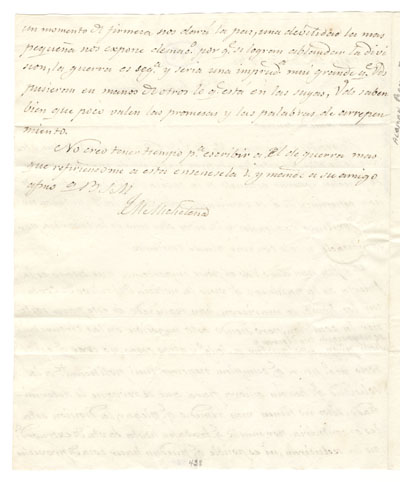 un momento de firmeza nos dará la paz, una devilidad la mas
pequeña nos expone demaᵒ. porq.ᵉ si logran ablandar la divi
sion, la guerra es seg.ᵃ y seria una imprud.ᵃ mui grande q.ᵉ Vds
pusieran en manos de otros lo q.ᵉ esta en las suyas, Vds saben
bien que poco valen las promesas y las palabras de arrepen
timiento.
No creo tener tiempo p.ᵃ escribir a el de guerra mas
que refiriendome a esta enseñesela V. y mande a su amigo
afmo Q. B. S. M.
J M Michelena
428